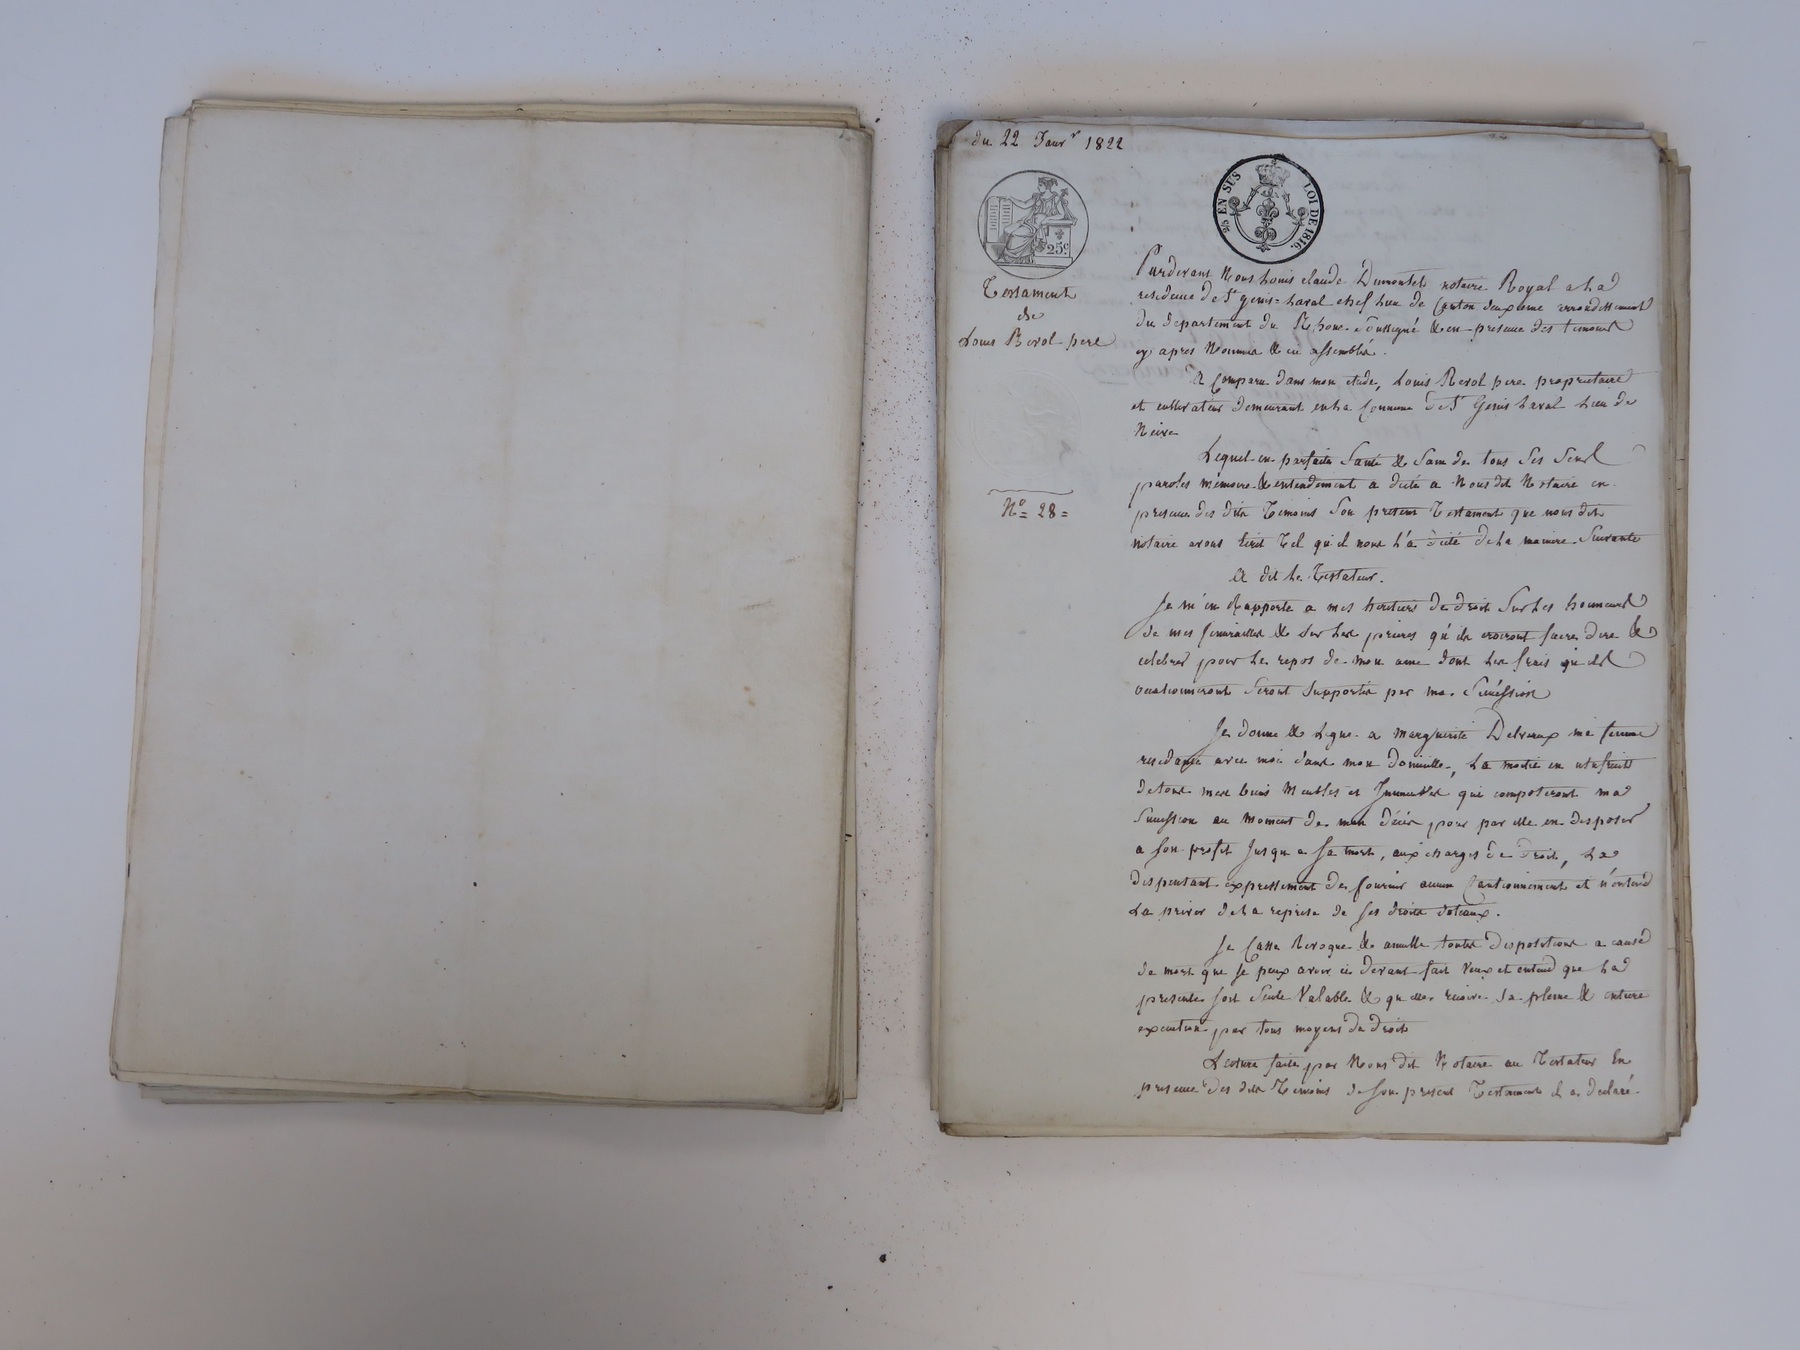 du 22 Janv.r 1822
2/5 EN SUS LOI DE 1816.
25c.
Testament
de
Louis Revol pere
N.o = 28 =
Pardevant Nous Louis Claude Dumontet notaire Royal a la
residence de St genis-Laval chef lieu de Canton deuxieme arrondissement
du departement du Rhone Soussigné & en presence des temoins
cy apres Nommés & cie assemblés.
A Comparu dans mon etude, Louis Revol pere proprietaire
et cultivateur demeurant en la Commune de St Genis Laval lieu de
Lequel en parfaite Santé & Sain de tous Ses Sens
paroles mémoire & entendement a dicté a Nous dit Notaire en
presence des dits Temoins Son present Testament que nous dit
notaire avons Ecrit Tel qu'il nous L'a dicté de la maniere Suivante
A dit le Testateur.
Je m'en Rapporte a mes heritiers de droit Sur les honneurs
de mes funerailles & Sur les prieres qu'ils croiront faire dire &
celebrer pour le repos de mon ame dont les frais qu'ils
occasionneront Seront Supportés par ma Succéssion
Je donne & Legue a Marguerite ma femme
residante avec moi dans mon domicille, La moitié en usufruit
de tous mes biens Meubles et Immeubles qui composeront ma
Succession au Moment de mon décés pour par elle en disposer
a Son profit Jusqu a Sa mort, aux charges de droit, La
dispensant expressement de fournir aucun Cautionnement et n'entend
La priver de La reprise de Ses droits dotaux.
Je Casse Revoque & annulle toutes dispositions a cause
de mort que Je peux avoir ci devant fait Veux et entend que La
presente Soit Seule Valable & qu elle recoive Sa pleine & entiere
execution par tous moyens de droit
Lecture faite par Nous dit Notaire au Testateur En
presence des dits Temoins de Son present Testament il a declaré